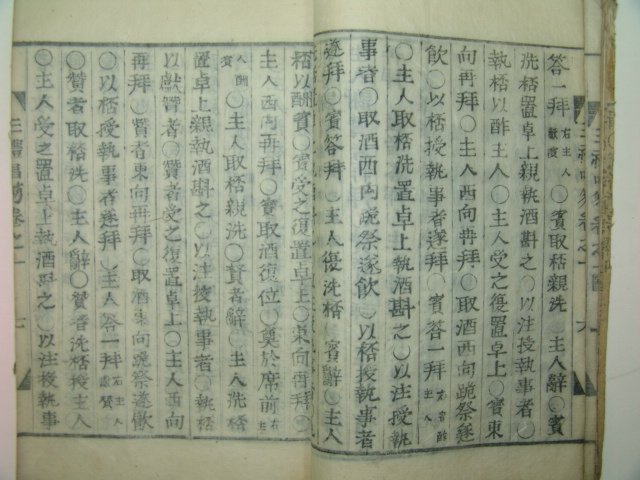 答一拜 右主人獻賓 ○賓取桮親洗○主人辭○賓
洗桮置卓上親執酒斟之○以注授執事者○
執桮以酢主人○主人受之復置卓上○賓東
向再拜○取酒東向跪祭遂
飮○以桮授執事者遂拜○賓答一拜 右賓酢主人
○主人取桮洗置卓上執酒斟之○以注授執
事者○取酒西向跪祭遂飮○以桮授執事者
遂拜○賓答拜○主人復洗桮○賓辭○主人
桮以酬賓○賓受之復置卓上○東向再拜○
主人西向再拜○賓取酒復位○奠於席前 右主
人酬賓 ○主人取桮親洗○賛者辭○主人洗桮
置卓上親執酒斟之○以注授執事者○執桮
以獻賛者○賛者受之復置卓上○主人西向
再拜○賛者東向再拜○取酒東向跪祭遂飮
○以桮授執事者遂拜○主人答一拜 右主人獻賛
○賛者取桮洗○主人辭○賛者洗桮授主人
○主人受之置卓上執酒斟之○以注授執事
三禮
卷之一